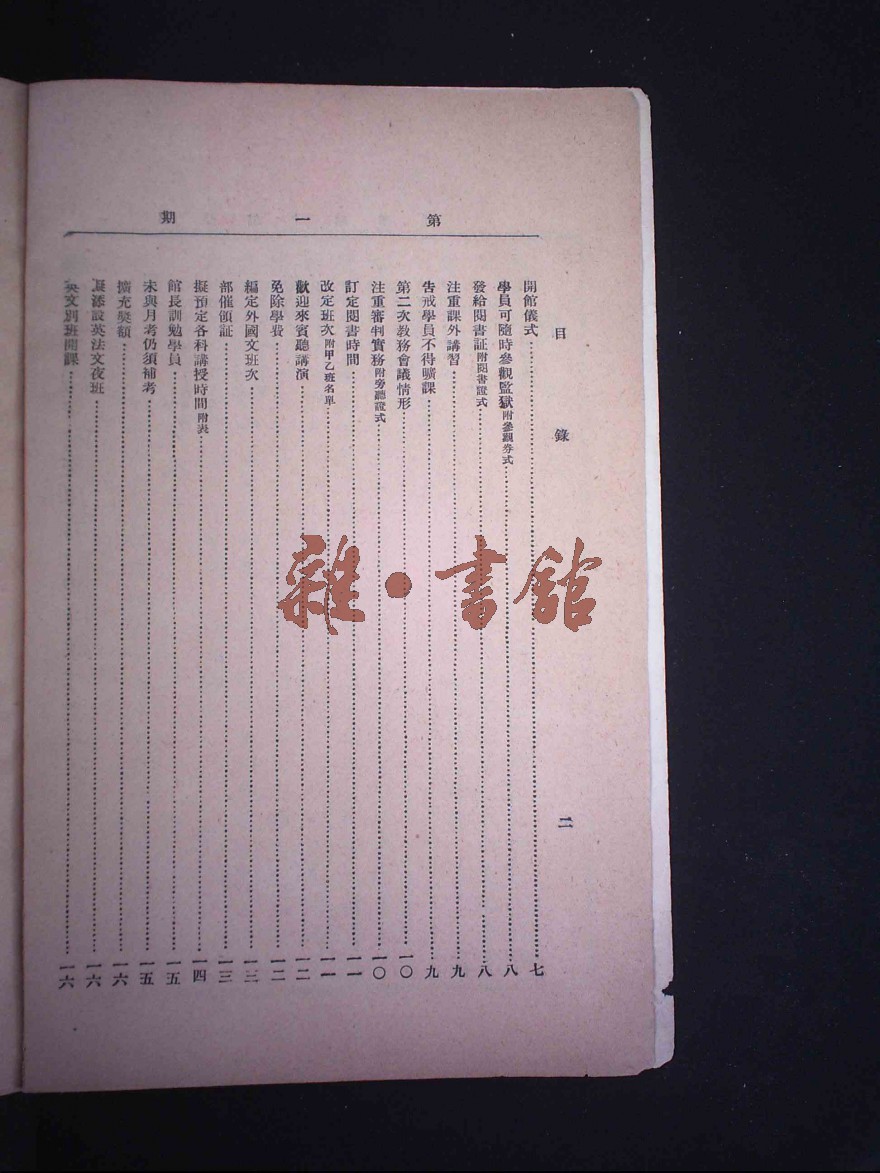 第一期
目錄
二
開館儀式……七
學員可隨時參觀監獄附參觀券式……八
發給閱書証附閱書證式……八
注重課外講習……九
告戒學員不得曠課……九
第二次敎務會議情形……一〇
注重審判實務附旁聽證式……一〇
訂定閱書時間……一一
改定班次附甲乙班名單……一一
歡迎來賓聽講演……一二
免除學費……一二
編定外國文班次……一三
部催頒証……一三
擬預定各科講授時間附表……一四
館長訓勉學員……一五
未與月考仍須補考……一五
擴充獎額……一六
擬添設英法文夜班……一六
英文別班開課……一六
雜·書館